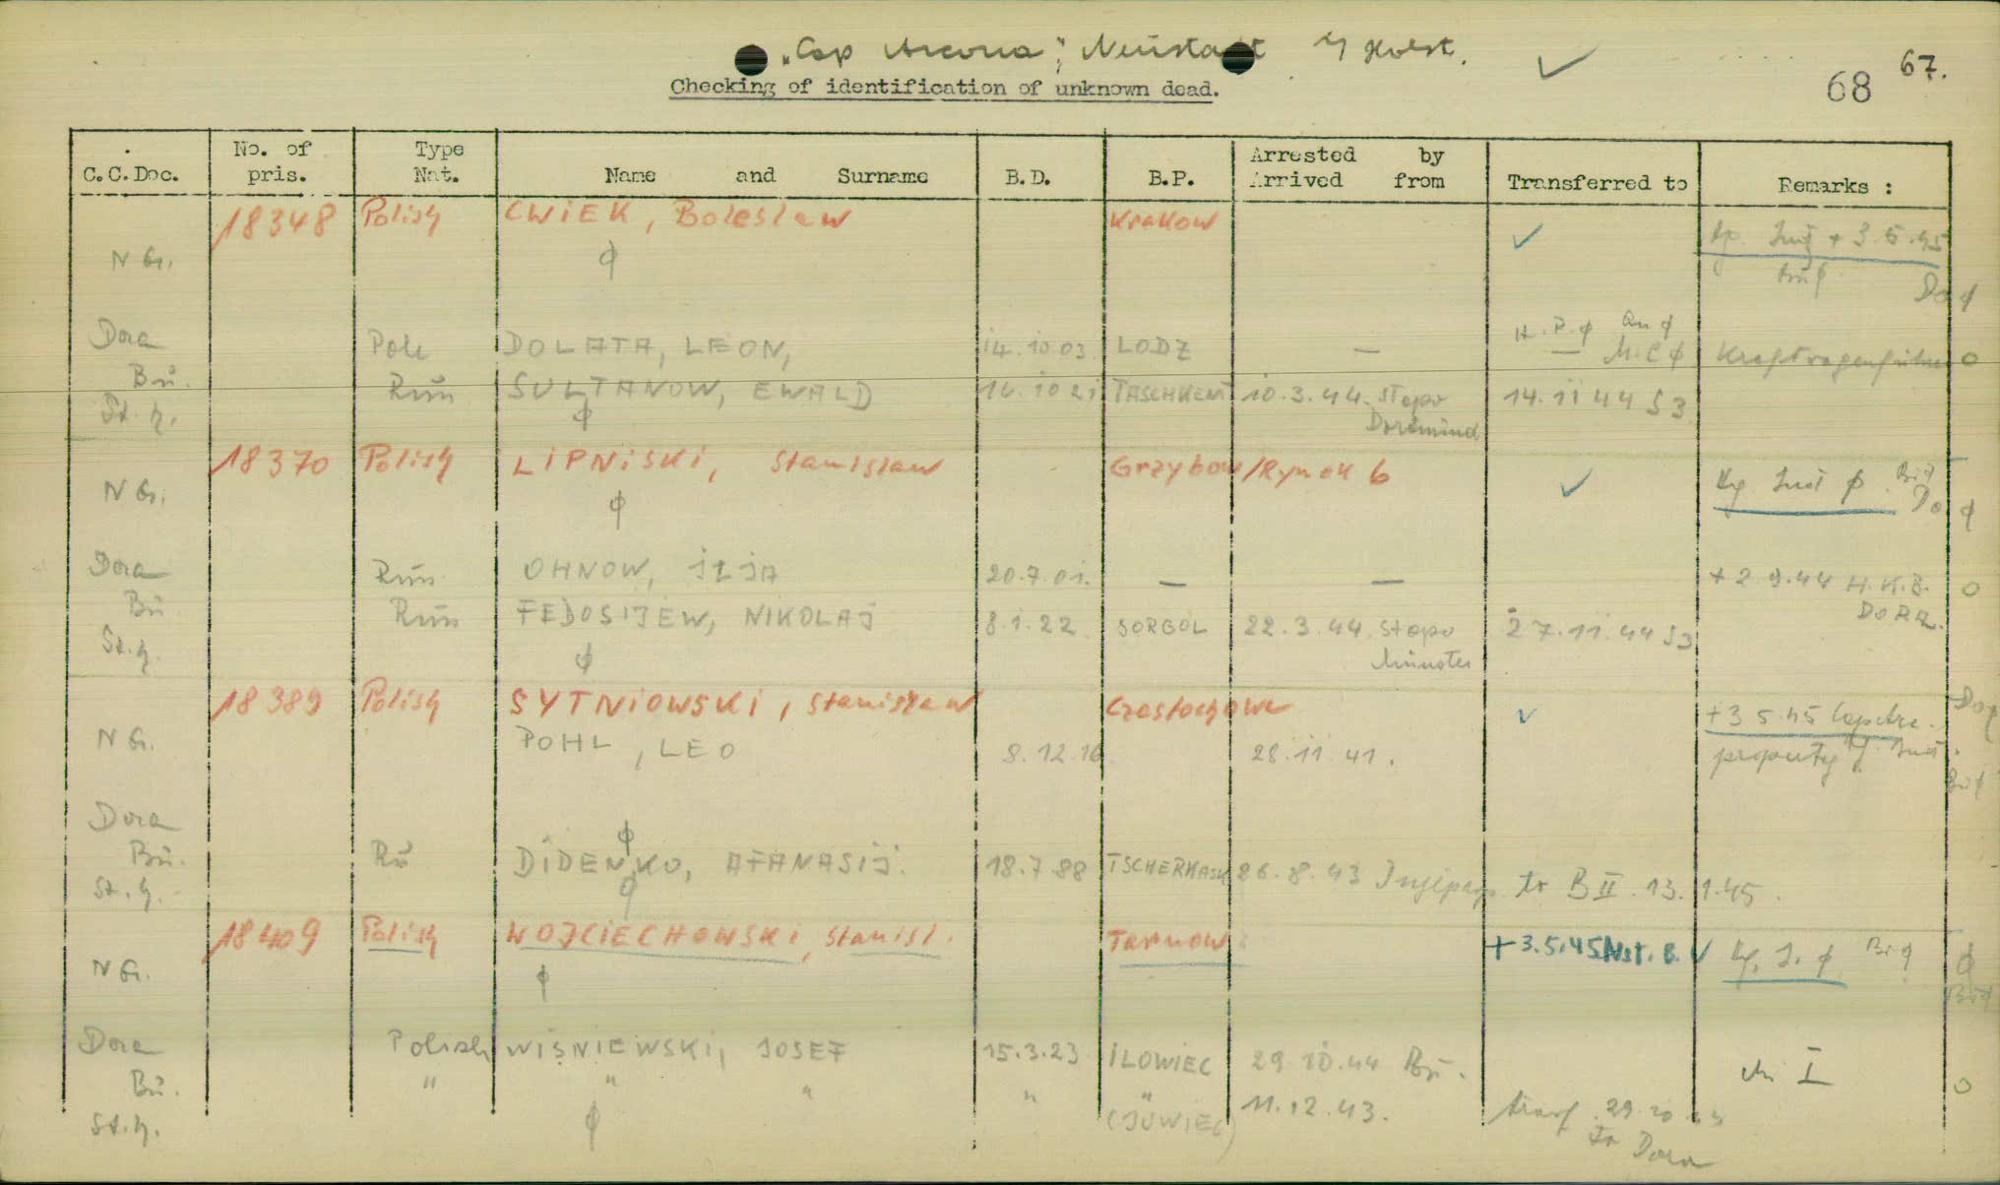 "Cap Arcona", Neustadt i/ Holst.
Checking of identification of unknown dead.
68 67.
C.C.Doc. No. of pris. Type Nat. Name and Surname B.D. B.P. Arrested by Arrived from Transferred to Remarks :
18348 Polish CWIEK, Boleslaw Krakow
N G. + 3.5.45
Do
Dora Pole DOLATA, LEON, 14.10.03 LODZ — H.P. ϕ M.C ϕ Kraftwagenführer o
Bu. Rus SULTANOW, EWALD 14.10 21 TASCHKENT 10.3.44. Stapo Dortmund 14.11 44 S3
St.h.
18370 Polish LIPNISKI, Stanislaw Grzybow/Rynek 6
N G. ϕ Do ϕ
Dora Rus OHNOW, ILJA 20.7.01. — — + 2 9.44 H.K.B. DORA. o
Bu Rus FEDOSIJEW, NIKOLAJ 8.1.22 SORGOL 22.3.44 Stapo Münster 27.11.44 S3
St.h.
18389 Polish SYTNIOWSKI, Stanislaw Czestochowa +3 5.45
N G. POHL, LEO 8.12.16 28.11.41. property
Dora
Bu. Ru DIDENKO, AFANASIJ. 18.7 88 TSCHERKASK 26.8.43 to B II. 13.1.45.
St.h.
18409 Polish WOJCIECHOWSKI, Stanisl. Tarnow +3.5.45 Nst. B.
N G. ϕ
Dora Polish WISNIEWSKI, JOSEF 15.3.23 ILOWIEC 29 10.44 Bu. I
Bu. " " " " " 11.12.43. o
St.h. ϕ (JUWIEC) transf. to Dora